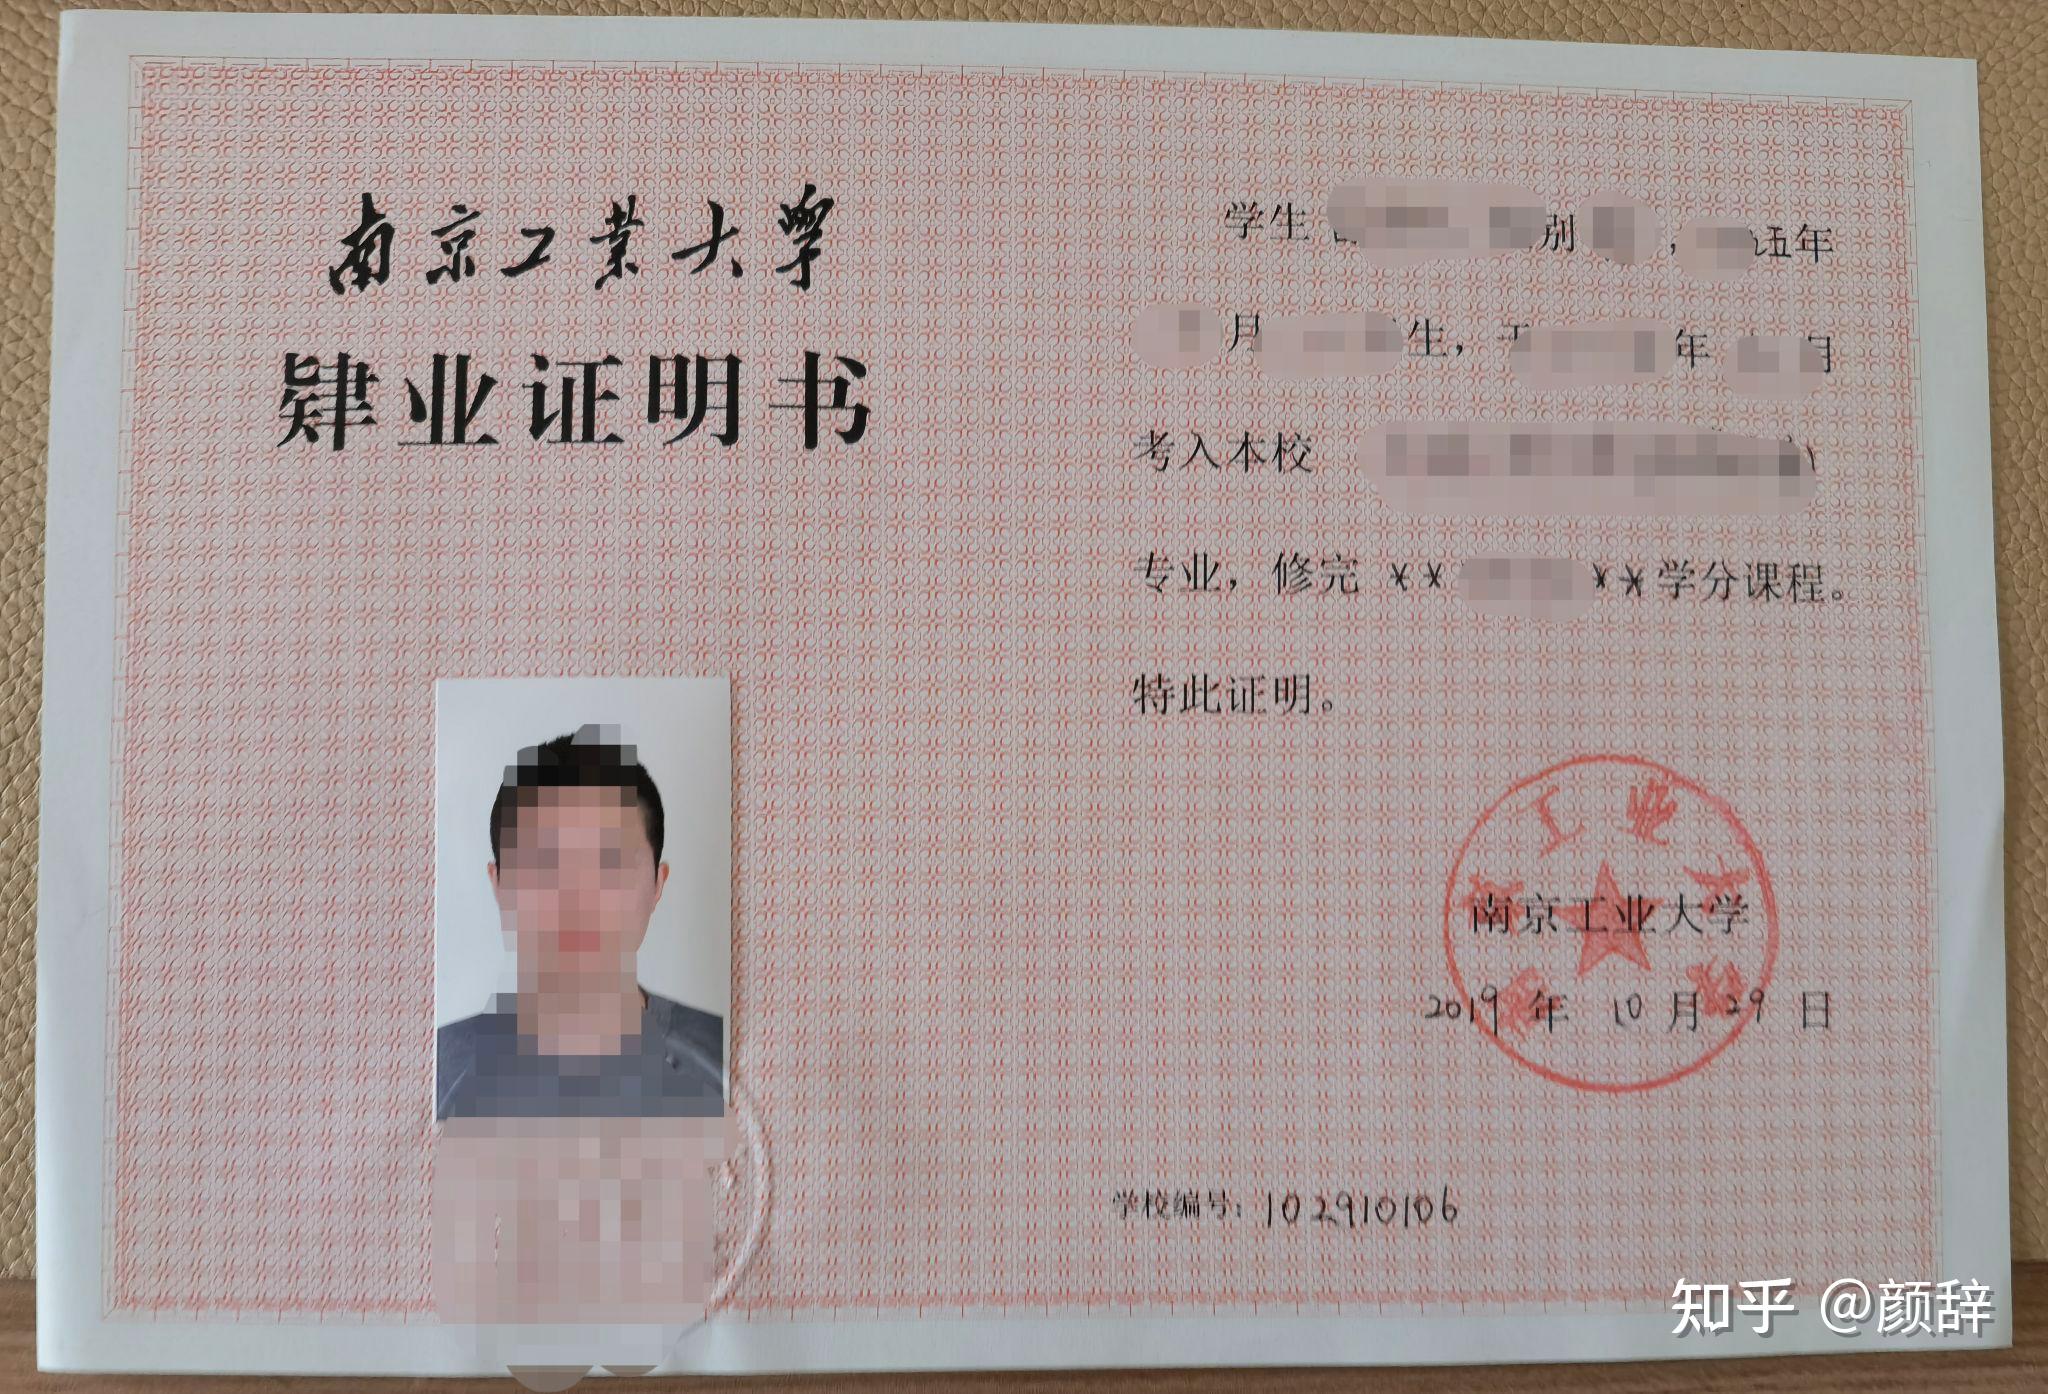 南京工业大学
肄业证明书
学生 别 , 伍年
月 生，于 年 月
考入本校
专业，修完 ** ** 学分课程。
特此证明。
工业大
南京工业大学
2019 年 10 月 29 日
学校编号：102910106
知乎 @颜辞